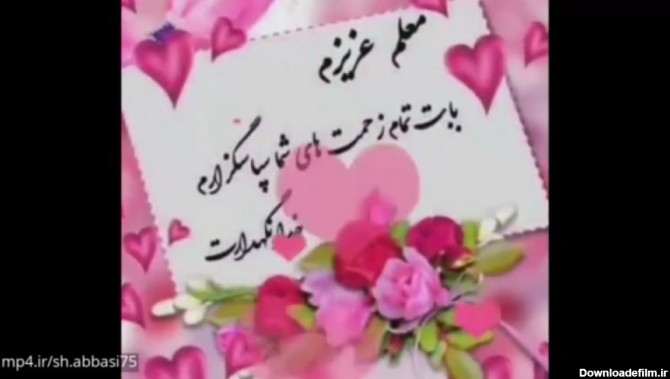 معلم عزیزم
بابت تمام زحمت های شما سپاسگزارم
خدا نگهدارت
mp4.ir/sh.abbasi75
Downloadefilm.ir